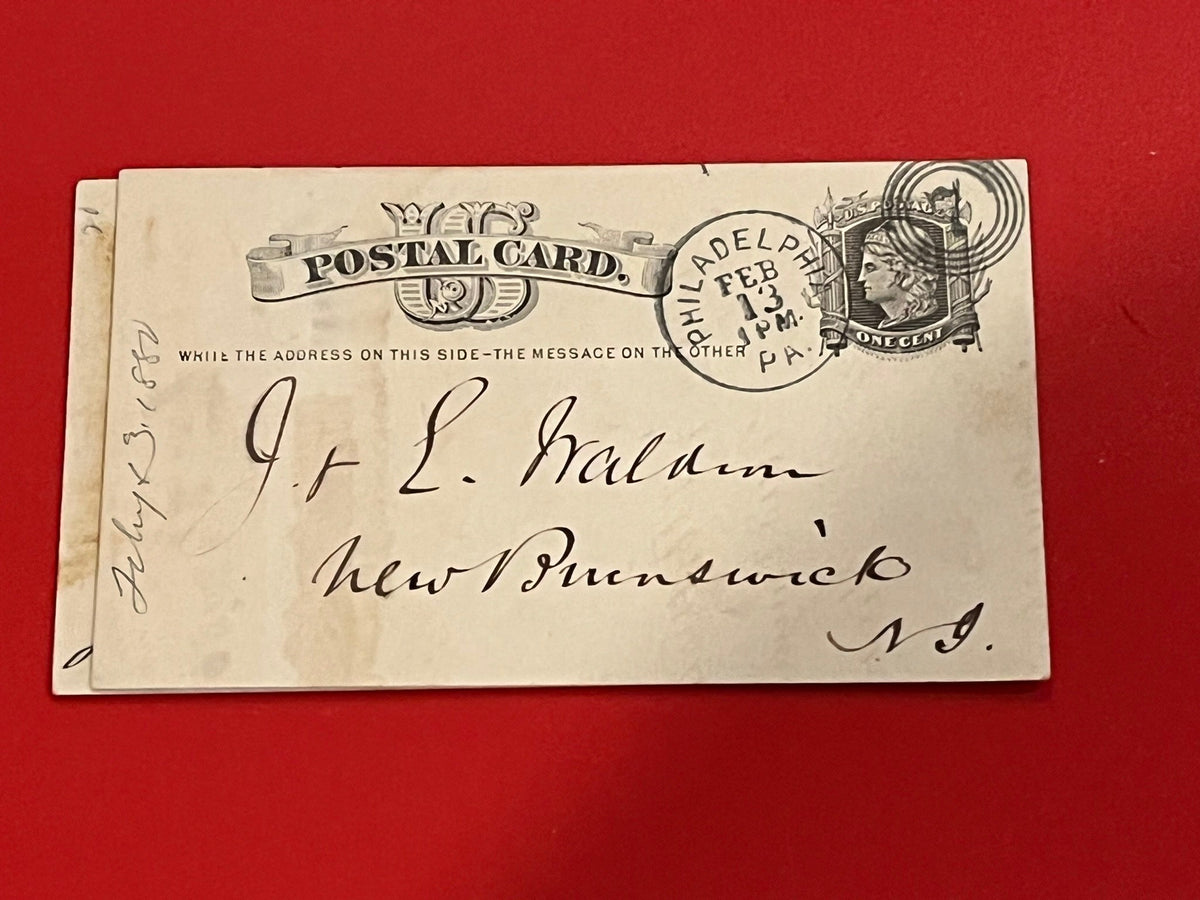 US
POSTAL CARD.
U.S. POSTAGE
1
ONE CENT
PHILADELPHIA
FEB
13
1 PM.
PA.
WRITE THE ADDRESS ON THIS SIDE–THE MESSAGE ON THE OTHER
J. & L. Waldron
New Brunswick
N J.
1882